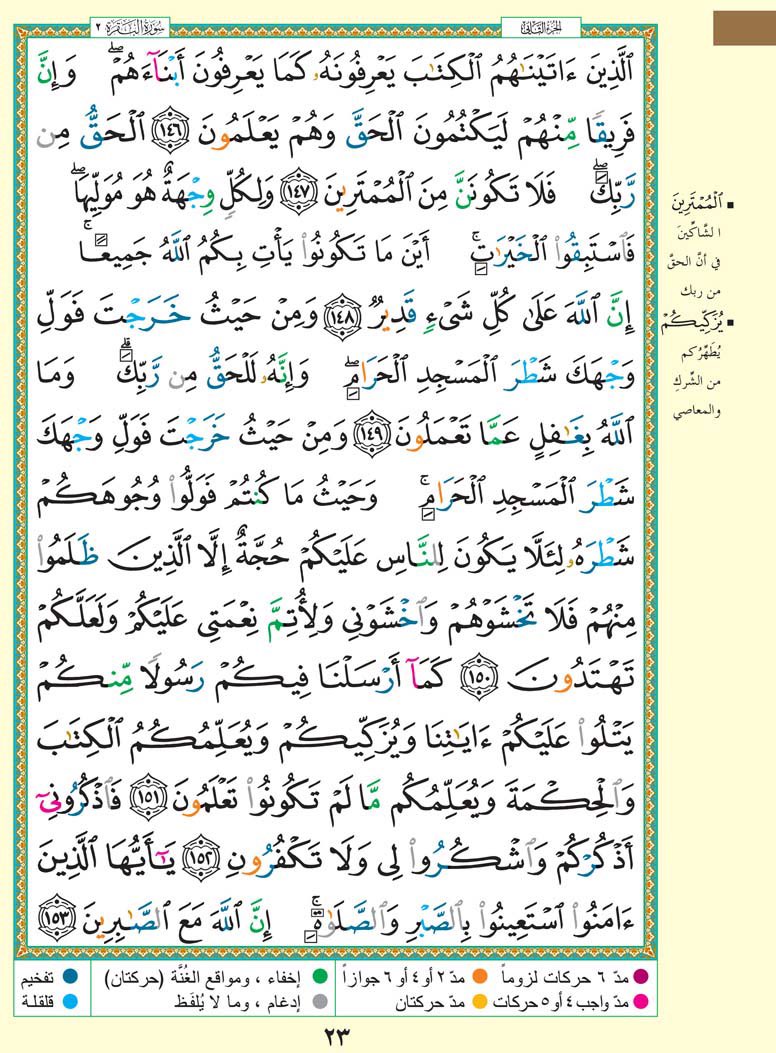 الجزء الثاني
سورة البقرة ٢
الَّذِينَ ءَاتَيْنَٰهُمُ الْكِتَٰبَ يَعْرِفُونَهُۥ كَمَا يَعْرِفُونَ أَبْنَآءَهُمْ ۖ وَإِنَّ
فَرِيقًا مِّنْهُمْ لَيَكْتُمُونَ الْحَقَّ وَهُمْ يَعْلَمُونَ ١٤٦ الْحَقُّ مِن
رَّبِّكَ ۖ فَلَا تَكُونَنَّ مِنَ الْمُمْتَرِينَ ١٤٧ وَلِكُلٍّ وِجْهَةٌ هُوَ مُوَلِّيهَا ۖ
فَاسْتَبِقُوا الْخَيْرَٰتِ ۚ أَيْنَ مَا تَكُونُوا يَأْتِ بِكُمُ اللَّهُ جَمِيعًا ۚ
إِنَّ اللَّهَ عَلَىٰ كُلِّ شَىْءٍ قَدِيرٌ ١٤٨ وَمِنْ حَيْثُ خَرَجْتَ فَوَلِّ
وَجْهَكَ شَطْرَ الْمَسْجِدِ الْحَرَامِ ۖ وَإِنَّهُۥ لَلْحَقُّ مِن رَّبِّكَ ۗ وَمَا
اللَّهُ بِغَٰفِلٍ عَمَّا تَعْمَلُونَ ١٤٩ وَمِنْ حَيْثُ خَرَجْتَ فَوَلِّ وَجْهَكَ
شَطْرَ الْمَسْجِدِ الْحَرَامِ ۚ وَحَيْثُ مَا كُنتُمْ فَوَلُّوا وُجُوهَكُمْ
شَطْرَهُۥ لِئَلَّا يَكُونَ لِلنَّاسِ عَلَيْكُمْ حُجَّةٌ إِلَّا الَّذِينَ ظَلَمُوا
مِنْهُمْ فَلَا تَخْشَوْهُمْ وَاخْشَوْنِى وَلِأُتِمَّ نِعْمَتِى عَلَيْكُمْ وَلَعَلَّكُمْ
تَهْتَدُونَ ١٥٠ كَمَآ أَرْسَلْنَا فِيكُمْ رَسُولًا مِّنكُمْ
يَتْلُوا عَلَيْكُمْ ءَايَٰتِنَا وَيُزَكِّيكُمْ وَيُعَلِّمُكُمُ الْكِتَٰبَ
وَالْحِكْمَةَ وَيُعَلِّمُكُم مَّا لَمْ تَكُونُوا تَعْلَمُونَ ١٥١ فَاذْكُرُونِىٓ
أَذْكُرْكُمْ وَاشْكُرُوا لِى وَلَا تَكْفُرُونِ ١٥٢ يَٰٓأَيُّهَا الَّذِينَ
ءَامَنُوا اسْتَعِينُوا بِالصَّبْرِ وَالصَّلَوٰةِ ۚ إِنَّ اللَّهَ مَعَ الصَّٰبِرِينَ ١٥٣
▪ الْمُمْتَرِينَ
الشَّاكِّينَ
في أنَّ الحقَّ
من ربك
▪ يُزَكِّيكُمْ
يُطَهِّرُكم
من الشِّركِ
والمعاصي
مدّ ٦ حركات لزوماً
مدّ ٢ أو ٤ أو ٦ جوازاً
إخفاء ، ومواقع الغُنَّة (حركتان)
تفخيم
مدّ واجب ٤ أو ٥ حركات
مدّ حركتان
إدغام ، وما لا يُلفَظ
قلقلة
٢٣